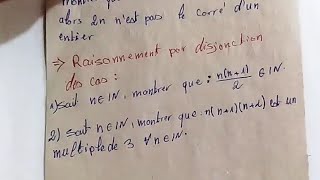 alors 2n n'est pas le carré d'un
entier
=> Raisonnement par disjonction
des cas :
1) soit n∈IN, montrer que : n(n+1)/2 ∈ IN.
2) soit n∈IN, montrer que : n(n+1)(n+2) est un
multiple de 3 ∀n∈IN.